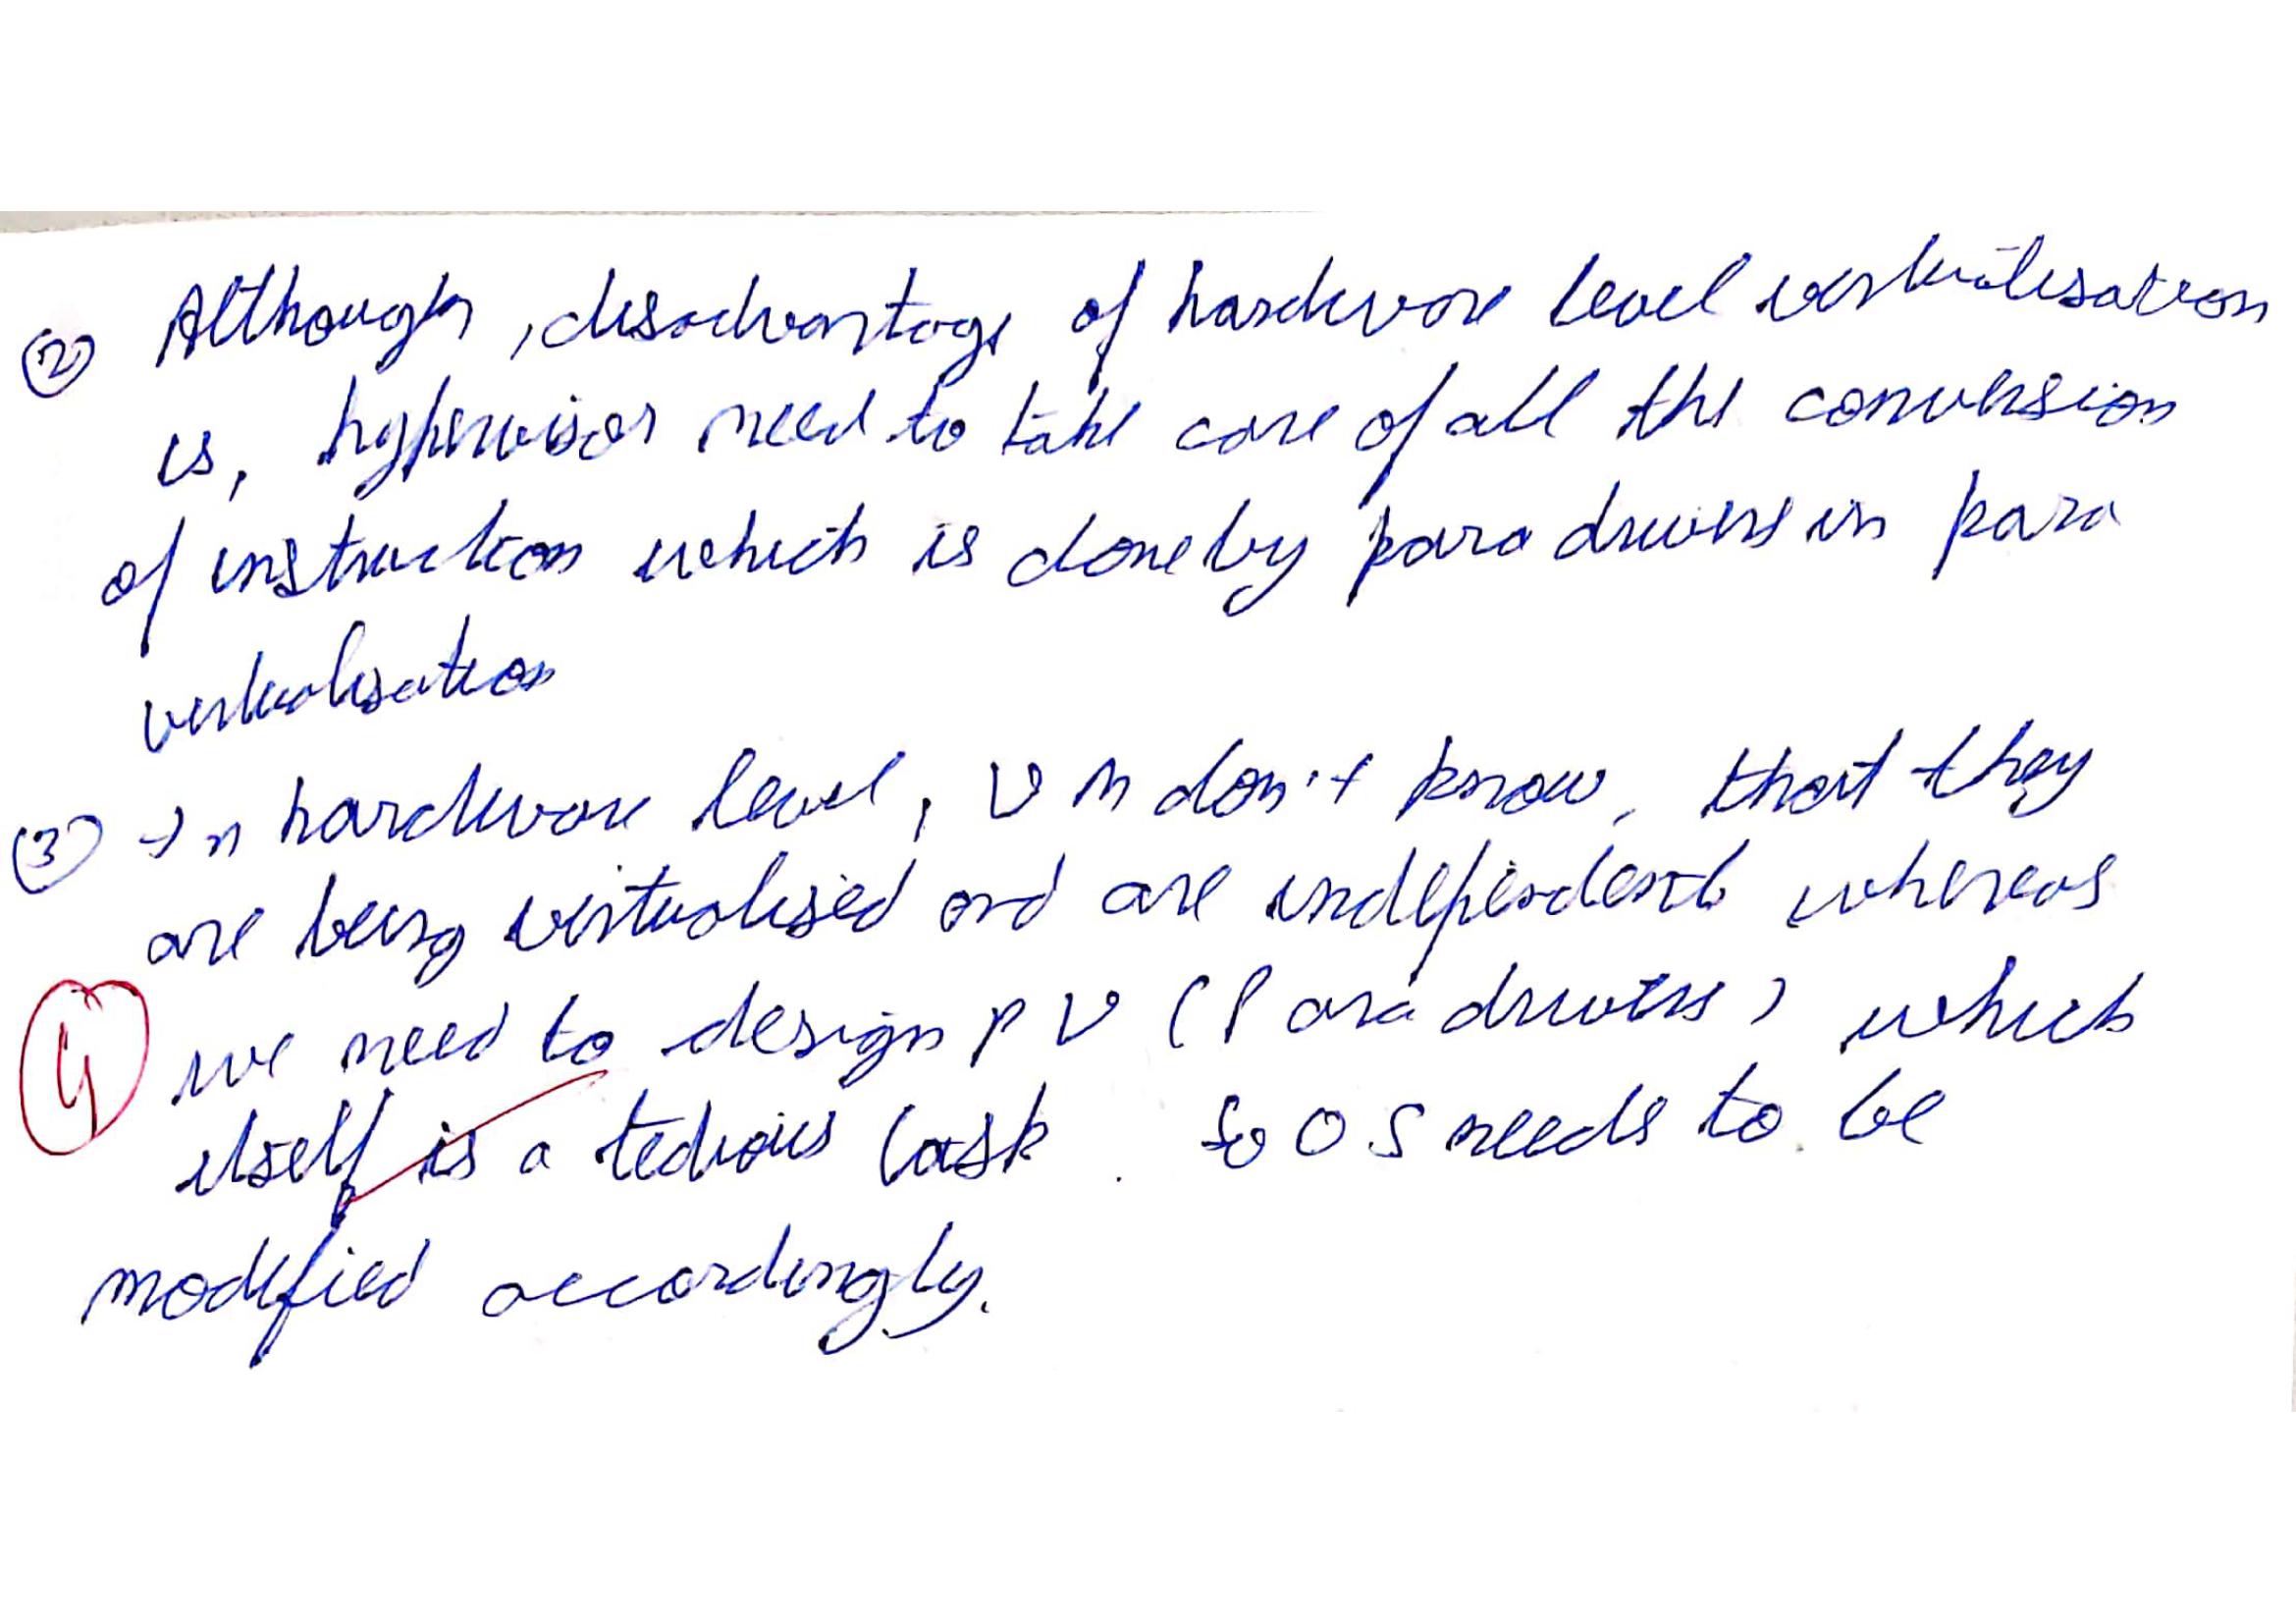 ② Although, disadvantage of hardware level virtualisation
is, hypervisor need to take care of all the conversion
of instruction which is done by para drivers in para
virtualisation
③ In hardware level, VM don't know, that they
are being virtualised and are independent whereas
we need to design PV (Para drivers) which
4
itself is a tedious task. So OS needs to be
modified accordingly.